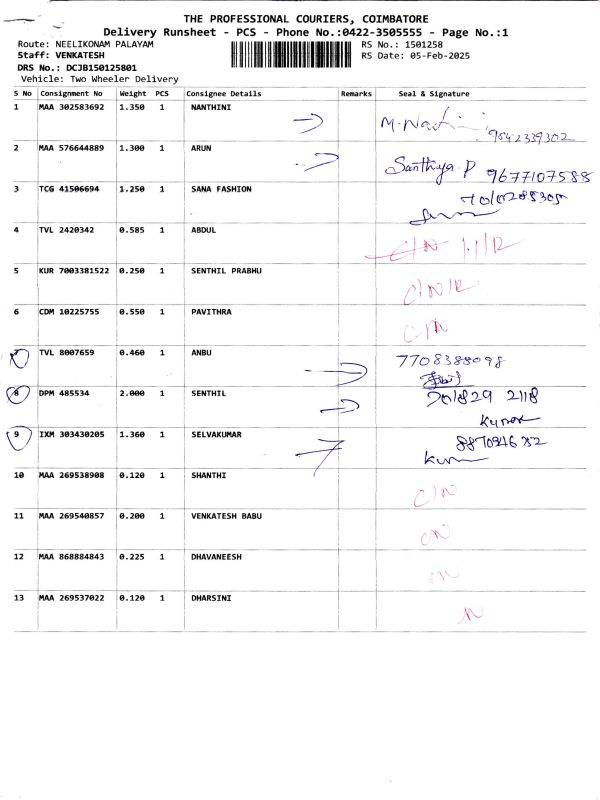 THE PROFESSIONAL COURIERS, COIMBATORE
Delivery Runsheet - PCS - Phone No.:0422-3505555 - Page No.:1
Route: NEELIKONAM PALAYAM RS No.: 1501258
Staff: VENKATESH RS Date: 05-Feb-2025
DRS No.: DCJB150125801
Vehicle: Two Wheeler Delivery
S No Consignment No Weight PCS Consignee Details Remarks Seal & Signature
1 MAA 302583692 1.350 1 NANTHINI
9542339302
2 MAA 576644889 1.300 1 ARUN
Santhya P 9677107588
3 TCG 41506694 1.250 1 SANA FASHION
4 TVL 2420342 0.585 1 ABDUL
5 KUR 7003381522 0.250 1 SENTHIL PRABHU
C/N/R
6 CDM 10225755 0.550 1 PAVITHRA
7 TVL 8007659 0.460 1 ANBU 7708388098
8 DPM 485534 2.000 1 SENTHIL
9 IXM 303430205 1.360 1 SELVAKUMAR
10 MAA 269538908 0.120 1 SHANTHI
C/N
11 MAA 269540857 0.200 1 VENKATESH BABU
CN
12 MAA 868884843 0.225 1 DHAVANEESH
13 MAA 269537022 0.120 1 DHARSINI
N